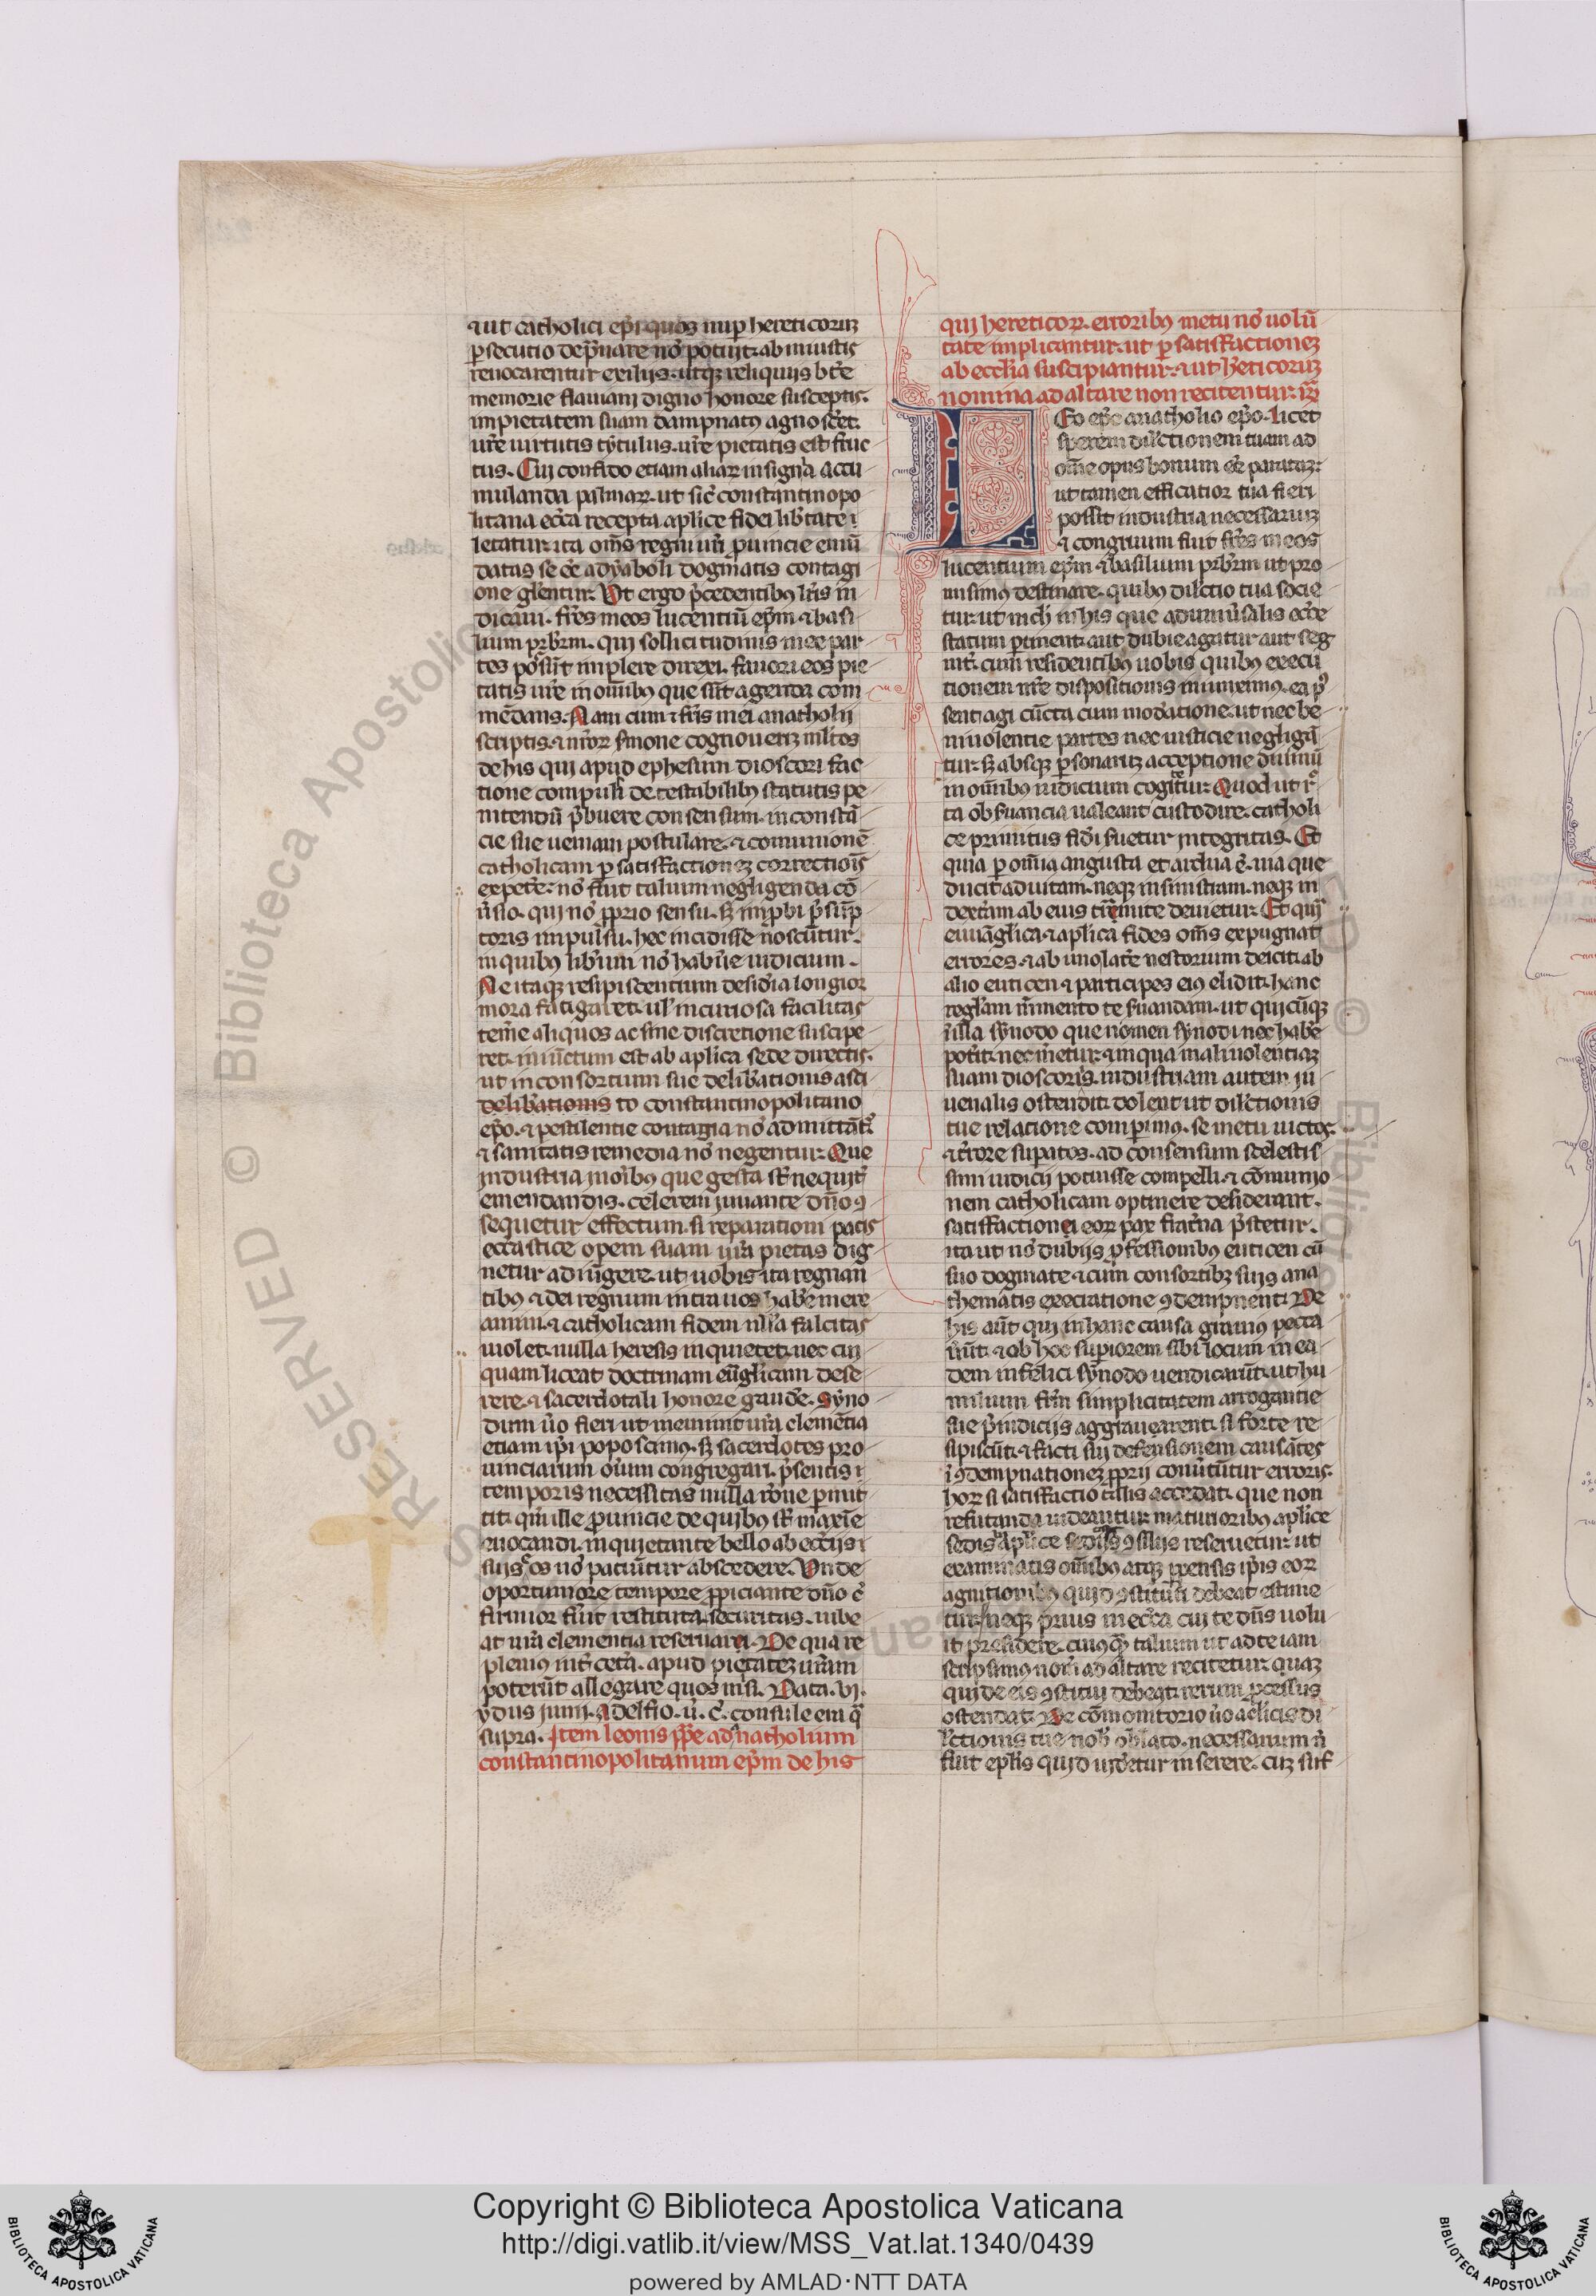 ⁊ ut catholici ep̄i quos nuꝑ hereticoruꝫ
ꝑsecutio dep̄uare no᷒ potuit ab iniustis
reuocarentur exilijs. utqꝫ reliquijs bt̄e
memorie flauiani digno honore susceptis.
impietatem suam dampnatꝰ agnosc̄et.
ur̄e uirtutis tytulus. ur̄e pietatis est fruc
tus. Cui confido etiam aliaꝝ insignia accu
mulanda palmaꝝ. ut sic̄ constantinopo
litana ecc̄a recepta apl̓ice fidei lib̓tate
letatur. ita om̄s regni ur̄i ꝓuincie emū
datas se ee᷒ a dyaboli dogmatis contagi
one gl̓entur. Ut ergo p̄cedentibꝰ lr̄is in
dicaui. fr̄es meos lucentiū ep̄m ⁊ basi
lium pr̄br̄m. qui sollicitudinis mee par
tes pos̄s̄it implere direxi. fauori eos pie
tatis ur̄e in om̄ibꝰ que s̄t agenda com
mēdans. Nam cum ⁊ fr̄is mei anatholij
scriptis. ⁊ nr̄oꝝ s̄mone cognoueriꝫ ml̓tos
de his qui apud ephesum dioscori fac
tione compulsi detestabilibꝰ statutis pe
nitendū p̄buere consensum. inconstā
cie sue ueniam postulare. ⁊ comunionē
catholicam ꝑ satisfactioneꝫ correctiōis
expete᷒. no᷒ fuit talium negligenda cō
ūsio. qui no᷒ ꝓprio sensu. sꝫ imꝓbi p̄sūp
toris impulsu. hec incidisse noscūtur.
in quibꝰ lib̓um no᷒ habue᷒ iudicium.
Ne itaqꝫ resipiscentium desid̓ia longior
mora fatigaret. ul̓ incuriosa facilitas
teme᷒ aliquos ac sine discretione suscipe
ret. iniūctum est ab apl̓ica sede directis.
ut in consortium sue delib̓ationis asci
delib̓ationis to constantinopolitano
ep̄o. ⁊ pestilentie contagia no᷒ admittāt᷒
⁊ sanitatis remedia no᷒ negentur. Que
industria
emendandis. celerem iuuante dn̄o ꝯ
sequetur effectum. si reparationi pacis
ecc̄astice opem suam ur̄a pietas dig
netur adiūgere. ut uobis ita regnan
tibꝰ ⁊ dei regnum intra uos habe᷒ mere
amini. ⁊ catholicam fidem nulla falcitas
uiolet. nulla heresis inquietet. nec cui
quam liceat doctrinam eūglicam dese
rere. ⁊ sacerdotali honore gaude᷒. Syno
dum ūo fieri ut meminit ur̄a clemētia
etiam ip̄i poposcimꝰ. sꝫ sacerdotes pro
uinciarum oīum congregari. p̄sentis
temporis necessitas nulla rōne ꝑmit
tit. qm̄ ille ꝓuincie de quibꝰ s̄t maxīe
euocandi. inquietante bello ab ecc̄ijs
suis eos no᷒ patiūtur abscedere. Unde
oportuniore tempore ꝓpiciante dn̄o c̄
firmior fu̓it restituta securitas. iube
at ur̄a clementia reseruari. De qua re
pleniꝰ int̓ cet̓a. apud pietateꝫ ur̄am
poterūt allegare quos misi. Data. vj.
ydus junij. Adelfio. ū. c̄. consule
supra. Item leonis pp̄e ad anatholium
constantinopolitanum ep̄m de his
qui hereticoꝝ. erroribꝰ metu no᷒ uolū
tate implicantur. ut ꝑ satisfactioneꝫ
ab eccl̓ia suscipiantur. ⁊ ut h̓eticoruꝫ
nomina ad altare non recitentur.
Leo ep̄c anatholio ep̄o. Licet
sperem dil̓ctionem tuam ad
om̄e opus bonum ee᷒ paratiꝫ:
ut tamen efficatior tua fieri
possit industria necessariuꝫ
⁊ congruum fuit fr̄es meos
lucentium ep̄m ⁊ basilium pr̄br̄m ut pro
misimꝰ destinare. quibꝰ dil̓ctio tua socie
tur. ut nich̓ in his que ad uniu̓salis ecc̄e
statum ꝑtinent. aut dubie agatur aut seg
nit̓. cum residentibꝰ uobis quibꝰ execu
tionem nr̄e dispositionis iniunximꝰ. ea p̄
sent agi cūcta cum mod̓atione. ut nec be
niuolentie partes nec iusticie negligā
tur. sꝫ absqꝫ ꝑsonaruꝫ acceptione diuinū
in om̄ibꝰ iudicium cogitetur. Quod ut r̓
ta obs̄uancia ualeant custodire. catholi
ce primitus fidi s̄uetur integritas. Et
quia ꝑ om̄ia angusta et ardua c̄. uia que
ducit ad uitam. neqꝫ in sinistram. neqꝫ in
dext̓am ab eius tramite deuietur. Et
euuāglica ⁊ apl̓ica fides om̄s expugnat
errores. ⁊ ab uno late᷒ nestorium deicit. ab
alio euticen ⁊ participes eiꝰ elidit. hanc
regl̓am memento te s̄uandam. ut quicūqꝫ
ī illa synodo que nomen synodi nec habe᷒
potuit. nec meretur. ⁊ in qua maliuolentiaꝫ
suam dioscorꝰ. industriam autem iu
uenalis ostendit. dolent ut dil̓ctionis
tue relatione comꝑimꝰ. se metu uictos.
⁊ t̓rore suꝑatos. ad consensum scelestis
simi iudicij potuisse compelli. ⁊ cōmunio
nem catholicam optinere desiderant.
satisfactioni eoꝝ pax frat̓na p̄stetur.
ita ut no᷒ dubijs ꝓfessionibꝰ euticen cū
suo dogmate ⁊ cum consortibꝫ suis ana
thematis execratione ꝯdempnent. De
his aūt qui in hanc causa grauiꝰ pecca
ūūt. ⁊ ob hoc suꝑiorem sibi locum in ea
dem infelici synodo uendicarūt. ut hu
milium fr̄m simplicitatem arrogantie
sue p̄iudicijs aggrauarent. si forte re
sipiscūt. ⁊ facti sui defensionem causātes
ī ꝯdempnationeꝫ ꝓprij conu̓tūtur erroris.
hoꝝ si satisfactio talis accedat. que non
refutanda uideantur. maturioribꝰ apl̓ice
sedis apl̓ice sedis ꝯsilijs reseruetur. ut
examinatis om̄ibꝰ atqꝫ ꝑpensis ip̄is eoꝝ
agnitionibꝰ quid ꝯstitui debeat estime
tur. Neqꝫ prius in ecc̄a cui te dn̄s uolu
it presidere. cuiꝰqꝫ talium ut ad te iam
scripsimꝰ nom̄ ad altare recitetur. quaꝫ
quid de eis ꝯstitui debeat. rerum ꝓcessus
ostendat. De cōmonitorio ūo a cl̓icis di
l̓ctionis tue nob̓ oblato. necessarium n̄
fuit epl̓is quid uidetur inserere. cuꝫ suf
Copyright © Biblioteca Apostolica Vaticana
http://digi.vatlib.it/view/MSS_Vat.lat.1340/0439
powered by AMLAD·NTT DATA
BIBLIOTECA APOSTOLICA VATICANA
BIBLIOTECA APOSTOLICA VATICANA